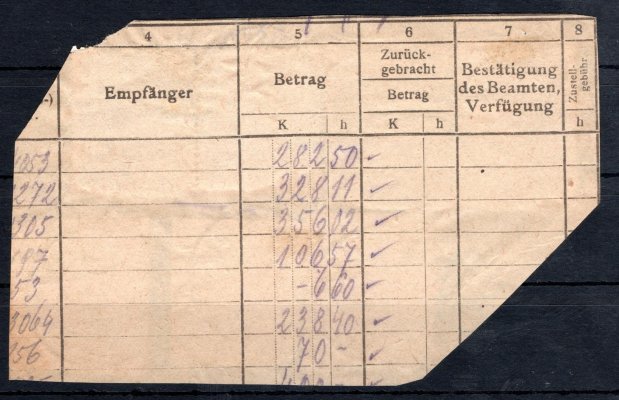 4 5 6 7 8
-) Empfänger Betrag Zurück-
gebracht
Betrag Bestätigung
des Beamten,
Verfügung Zustell-
gebühr
K h K h h
053 282 50 ✓
272 328 11 ✓
305 356 02 ✓
197 106 57 ✓
53 -6 60
3064 238 40 ✓
156 70 - ✓